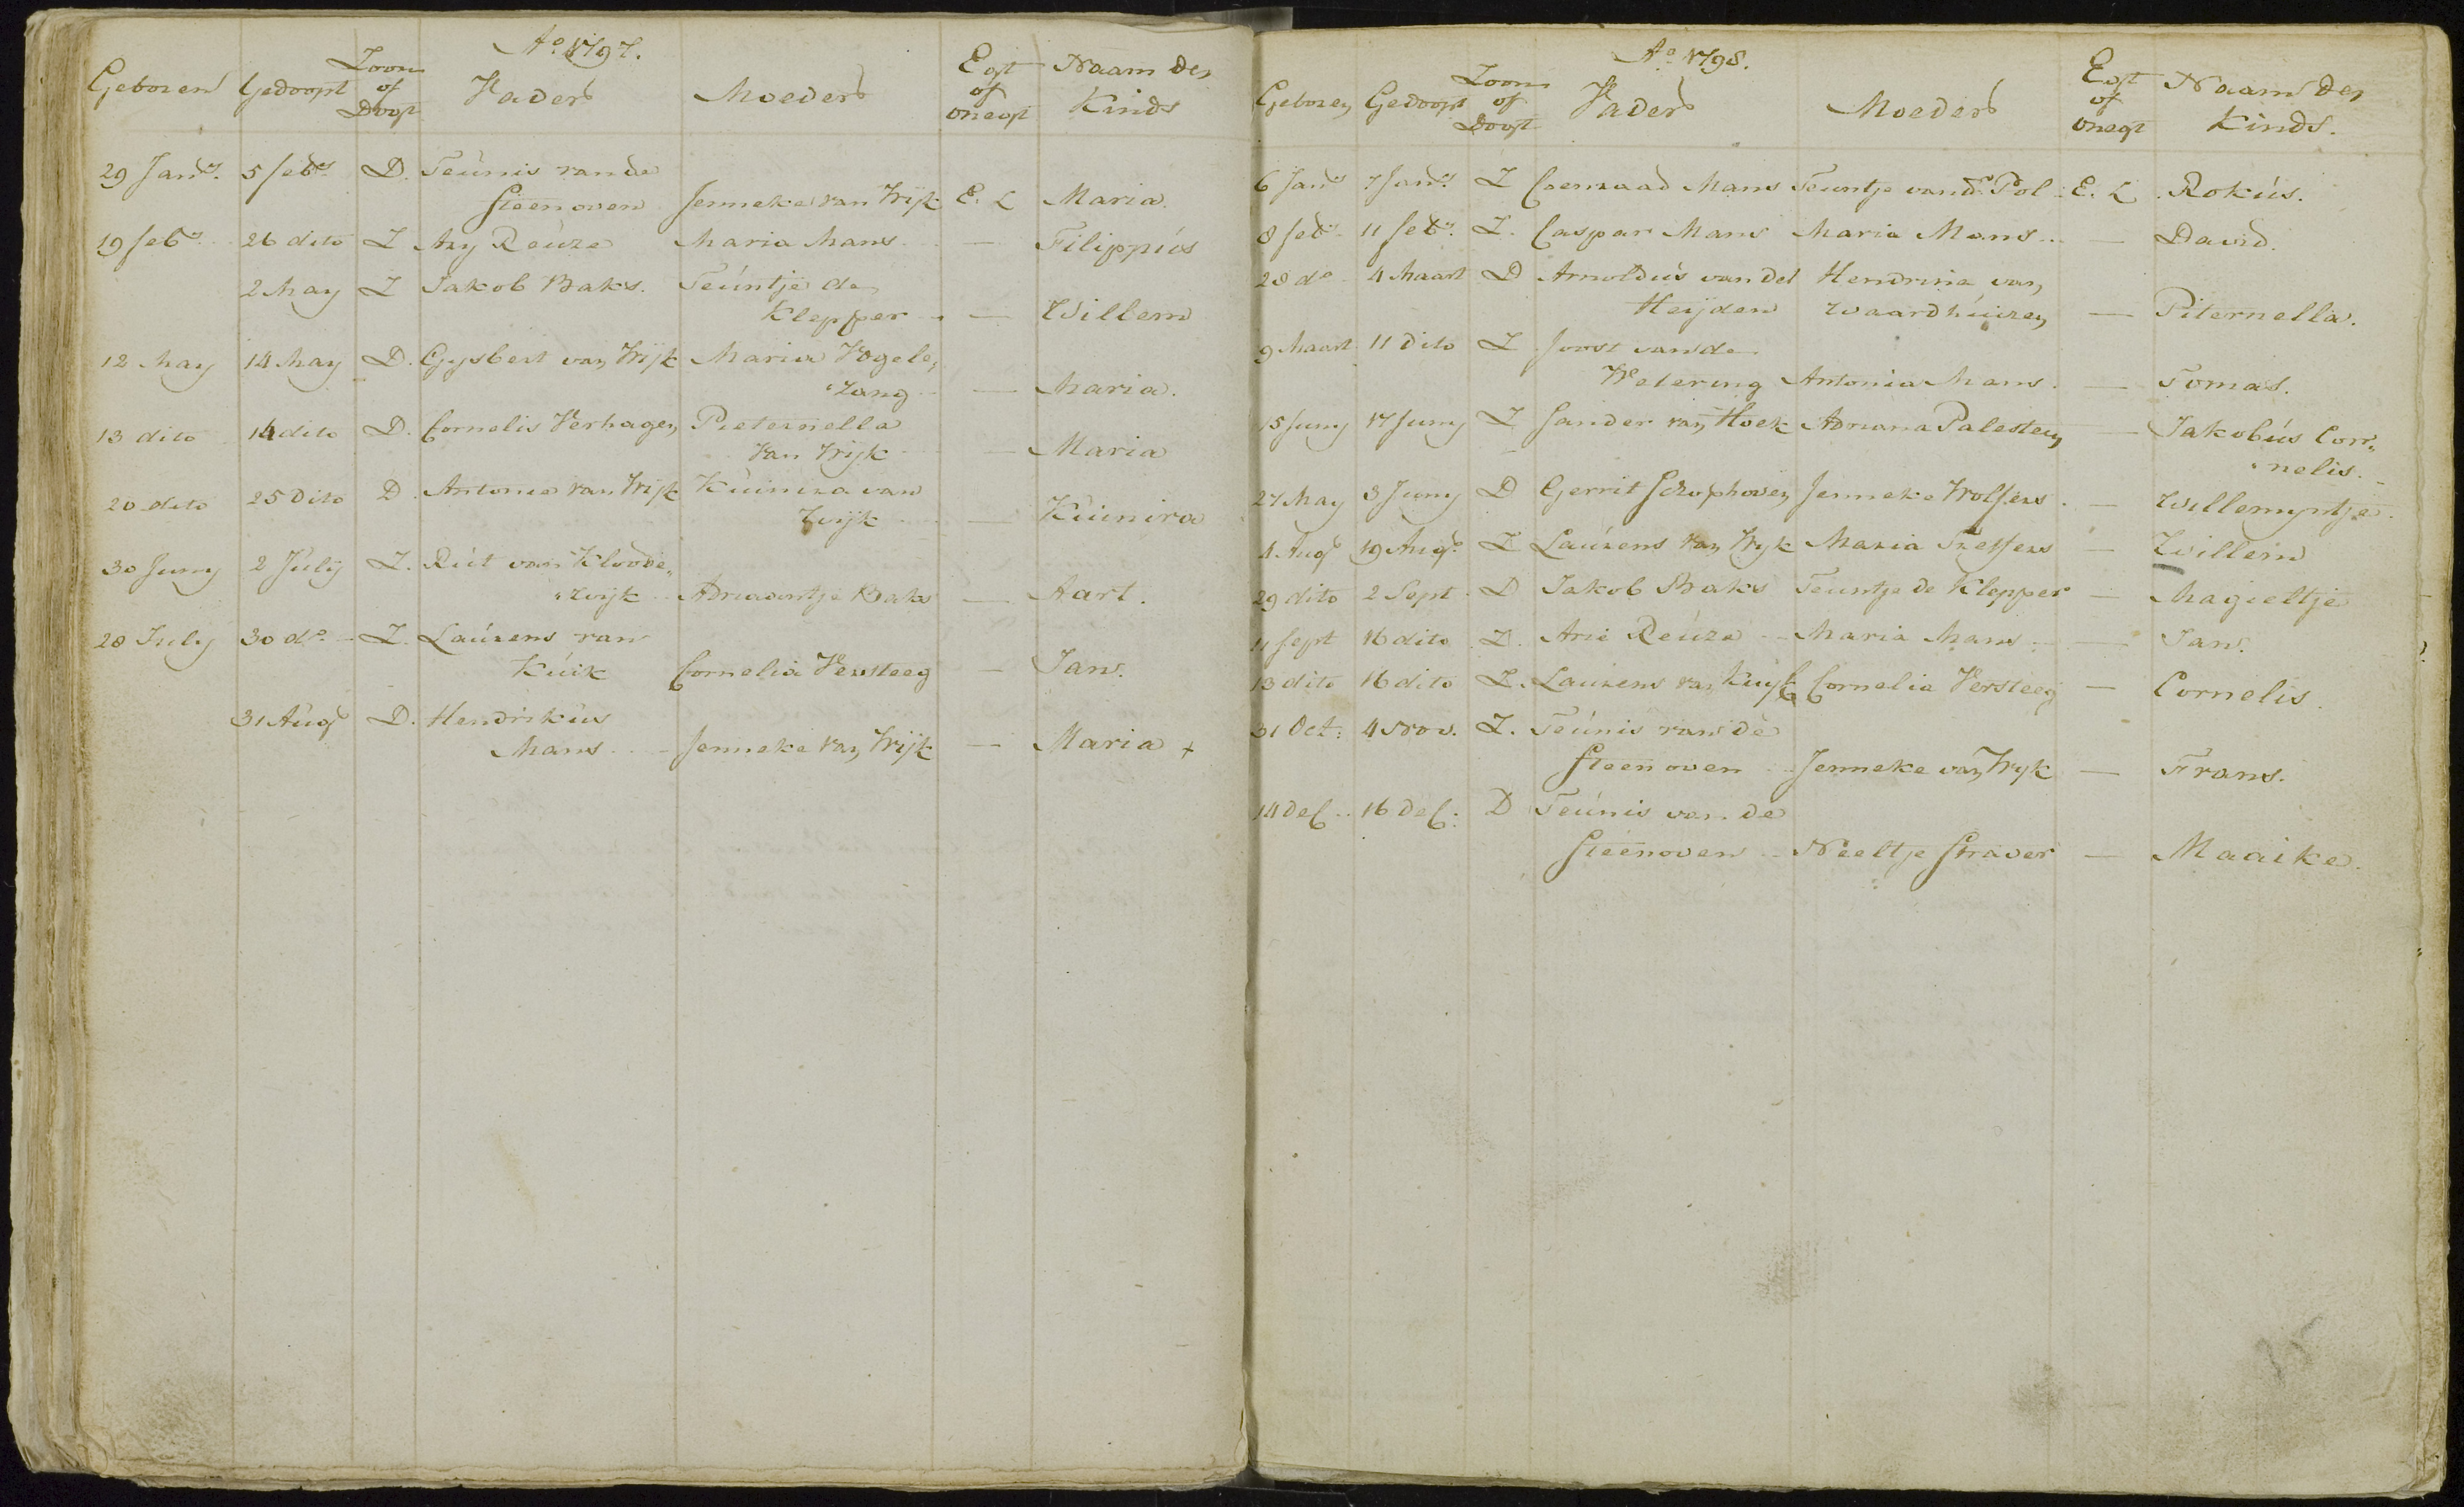 Ao. 1797.
Geboren Gedoopt Zoon of Dogt Vader Moeder Egt of onegt Naam des Kinds
29 Janr. 5 febr. D. Teúnis van de
Steenoven Jenneke van Wijk E. L Maria.
19 febr. 26 dito Z Ary Reúze Maria Mans — Filippús
2 May Z Jakob Baks. Teúntje de
Klepper — Willem
12 May 14 May D. Gysbert van Wijk Maria Vogele„
„zang — Maria.
13 dito 14 dito D. Cornelis Verhagen Pieternella
van Wijk — Maria
20 dito 25 Dito D. Antonie van Wijk Kúnira van
Wijk — Kúnira
30 Juny 2 Júlij Z. Rút van Kloode„
„wijk Adriaantje Baks — Aart.
28 July 30 do. Z. Laúrens van
Kúik Cornelia Versteeg — Jan.
31 Aúg D. Hendrikús
Mans Jenneke van Wijk — Maria +
Ao. 1798.
Geboren Gedoopt Zoon of Dogt Vader Moeder Egt of onegt Naam des Kinds.
6 Janr. 7 Janr. Z Coenraad Mans Teuntje vand. Pol E. L. Rokús.
8 febr. 11 febr. Z. Caspar Mans Maria Mans — David.
28 do 4 Maart D Arnoldús van del Hendrina van
Heijden Waardhúizen — Piternella.
9 Maart 11 Dito Z Joost van de
Wetering Antonia Mans. — Tomas.
15 Juny 17 Juny Z Sander van Hoek Adriana Palesteyn — Jakobús Cor„
„nelis.
27 May 3 Juny D Gerrit Schophoven Jenneke Wolfers. — Willemyntje.
4 Aug 19 Aug. Z Laúrens van Wyk Maria — Willem
29 dito 2 Sept. D Jakob Baks Teuntje de Klepper — Magieltje
11 Sept 16 dito Z. Arie Reúze Maria Mans — Jan.
13 dito 16 dito Z. Laurens van Kuyk Cornelia Versteeg — Cornelis.
31 Oct: 4 Nov. Z. Teúnis van de
Steenoven Jenneke van Wyk — Frans.
14 Dec. 16 Dec: D Teúnis van de
Steenoven Neeltje Straver — Maaike.